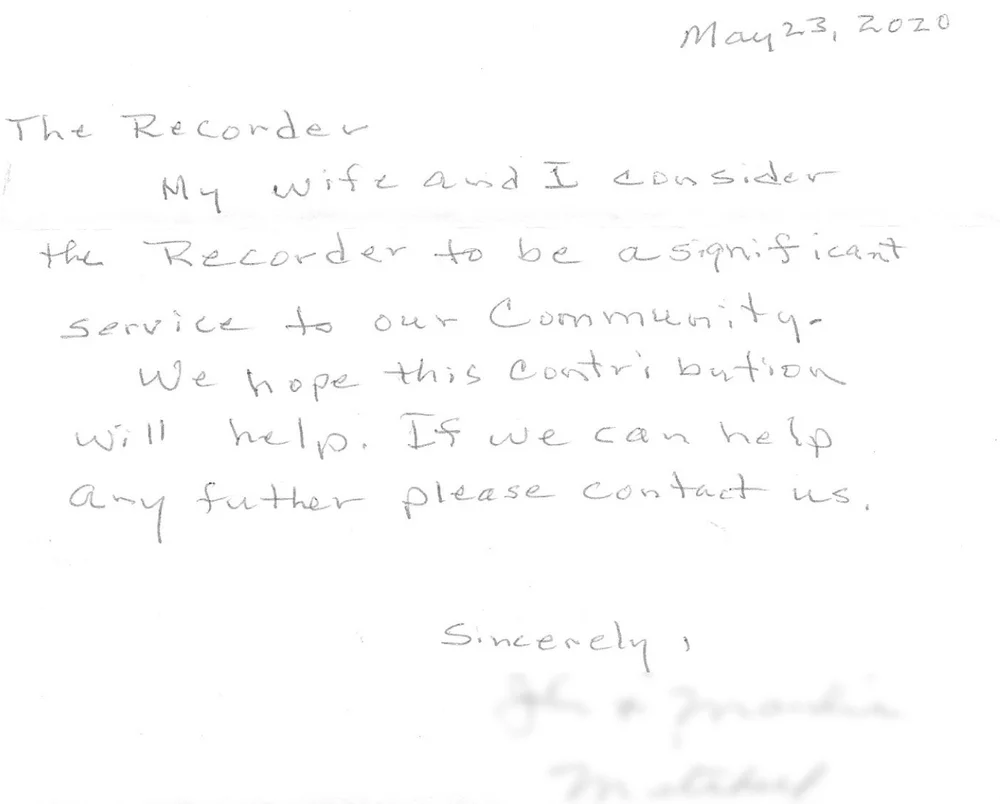 May 23, 2020
The Recorder
My wife and I consider
the Recorder to be a significant
service to our Community.
We hope this contribution
will help. If we can help
any futher please contact us.
Sincerely,